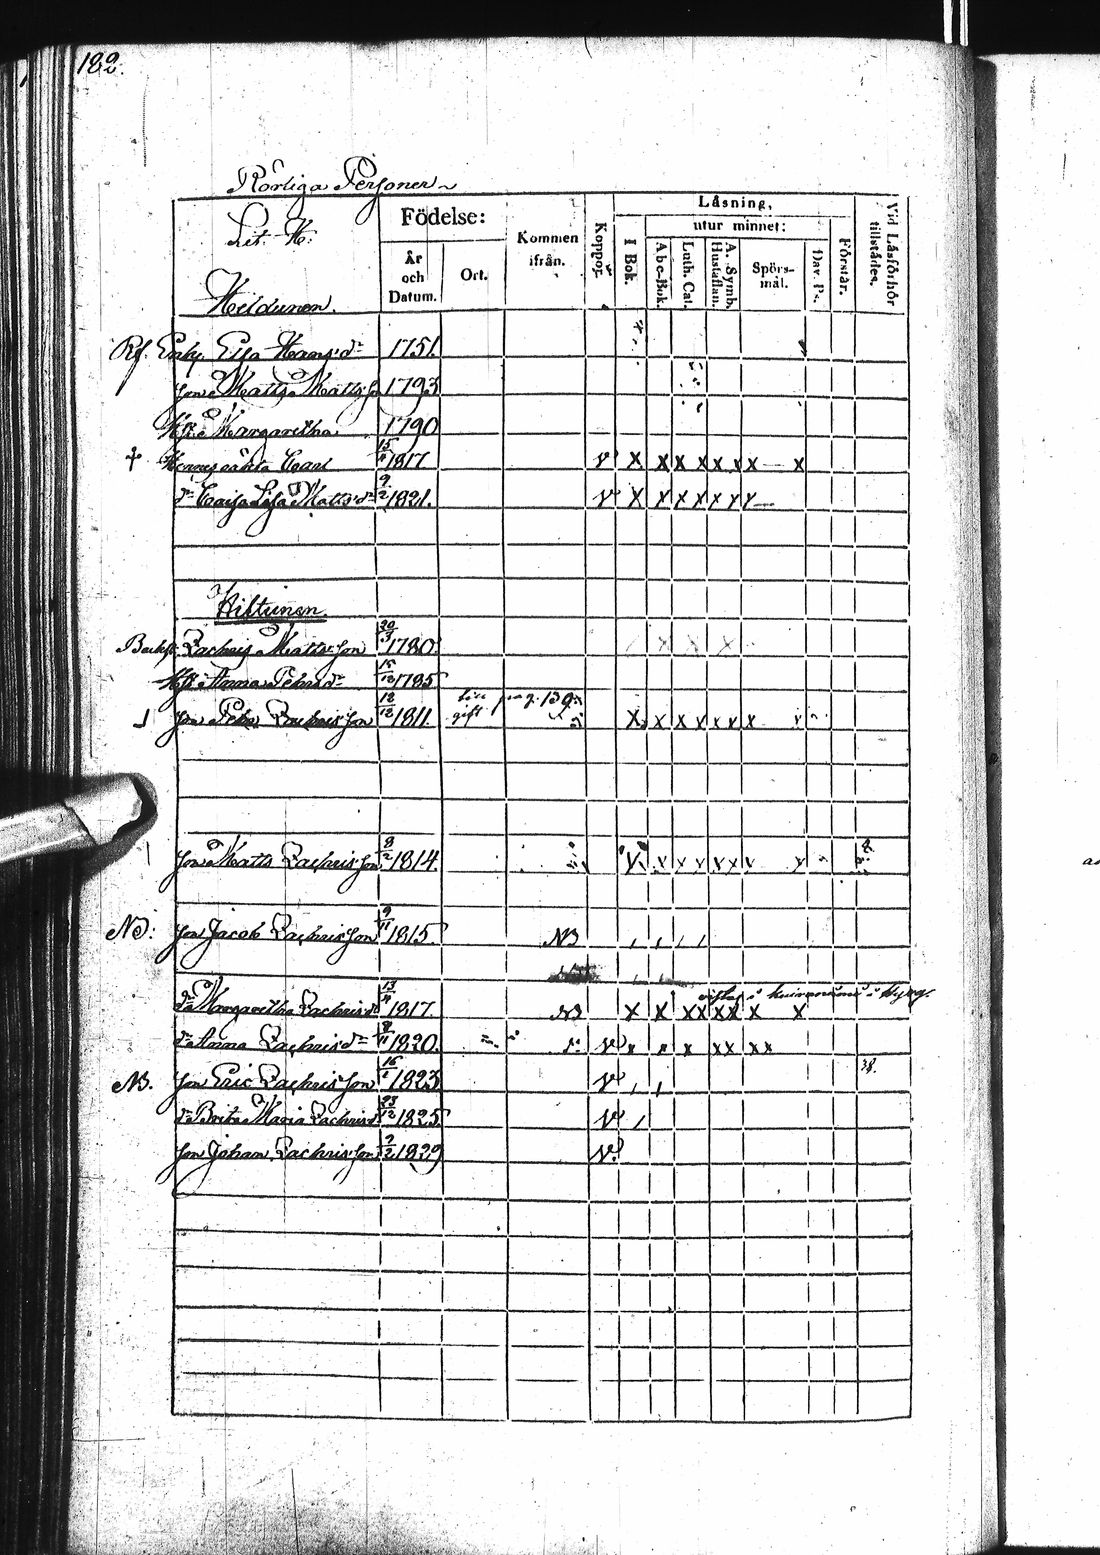 182.
Rörliga Personer
Lit. H.
Födelse:
Kommen ifrån.
Koppor.
Läsning,
utur minnet:
I Bok.
Abc-Bok.
Luth. Cat.
A. Symb. Hustaflan.
Spörs-mål.
Dav. Ps.
Förstår.
Vid Läsförhör tillstädes.
År och Datum.
Ort.
Hildunen.
Enk. Elsa Hansdr 1751.
Son Matts Mattsson 1793
Hu Margaretha 1790
+ Hennes oäkta Carl 15/ 1817 v x x x x x x x — x
dr Caisa Lisa Mattsdr 9/2 1821. v x x x x x x x —
Hiltunen.
Zachris Mattsson 20/3 1780.
Hu Anna Pehrsdr 15/12 1785
Son Pehr Zachrisson 12/12 1811. gift pag. 139 x x x x x x x x
Son Matts Zachrisson 8/2 1814. x x x x x x x x
NB: Son Jacob Zachrisson 9/11 1815. NB
dr Margaretha Zachrisdr 13/4 1817. NB x x x x x x x x
dr Anna Zachrisdr 8/11 1820. v x x x x x x x
NB. Son Eric Zachrisson 16/ 1823 v 38.
dr Brita Maria Zachrisdr 23/12 1825 v
Son Johan Zachrisson 9/2 1829 v.